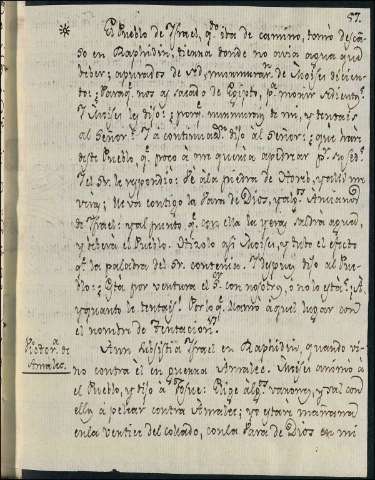 57.
El Pueblo de Israel, q.e iba de camino, tomó desca-
so en Raphidin, tierra donde no avia agua que
beber; apurados de sed, murmurar.n de Moisei dicien-
to: ¿Paraq.e nos as sacado de Egipto, p.a morir sedient.s?
Y Moisei les dijo: ¿porq.e murmurais de mi, y tentais
al Señor? Y á continuac.n dijo al Señor: ¿que haré
deste Pueblo, q.e poco á me queria apedrear p.r su sed?
Y el S.r le respondió: Ve á la piedra de Oreb, y alli me
veras; lleva contigo la Vara de Dios, y alg.s Ancianos
de Israel: y al punto q.e con ella la yeras saldra agua,
y beberá el Pueblo. Hizolo asi Moisei, y tubo el efecto
q.e la palabra del S.r contenia. Y después dijo al Pue-
blo: ¿Esta por ventura el S.r con nosotros, ó no lo está? ¿A
quanto le tentais? Por lo q.e llamó á quel lugar con
el nombre de Tentacion.
Victor.a de
Amalec.
Aun subsistia Israel en Raphidin, quando vi-
no contra él en guerra Amalec. Moisei animó á
el Pueblo, y dijo á Josue: Elige alg.s varones, y sal con
ellos á pelear contra Amalec; yo estaré manana
en la vertice del collado, con la Vara de Dios en mi